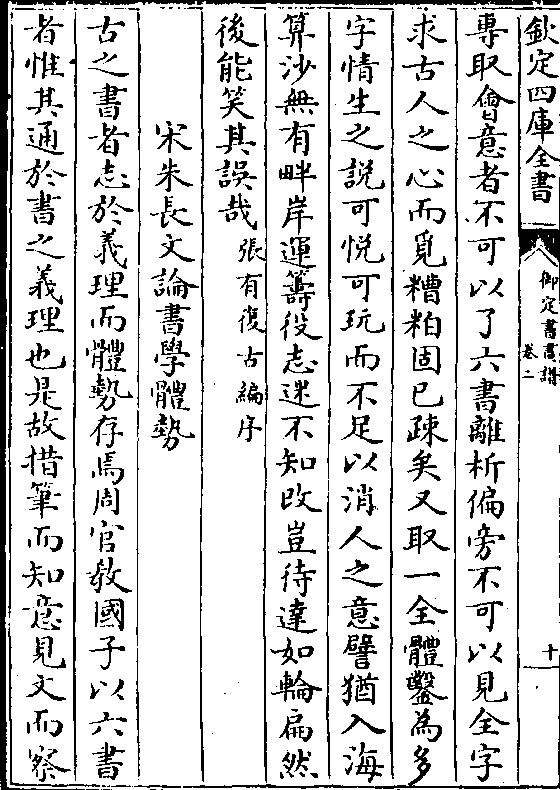 欽定四庫全書
御定書畫譜
卷二
十
專取會意者不可以了六書離析偏旁不可以見全字
求古人之心而覓糟粕固已疎矣又取一全體鑿為多
字情生之說可悅可玩而不足以消人之意譬猶入海
算沙無有畔岸運籌役志迷不知改豈待達如輪扁然
後能笑其誤哉張有復古編序
宋朱長文論書學體勢
古之書者志於義理而體勢存焉周官敎國子以六書
者惟其通於書之義理也是故措筆而知意見文而察